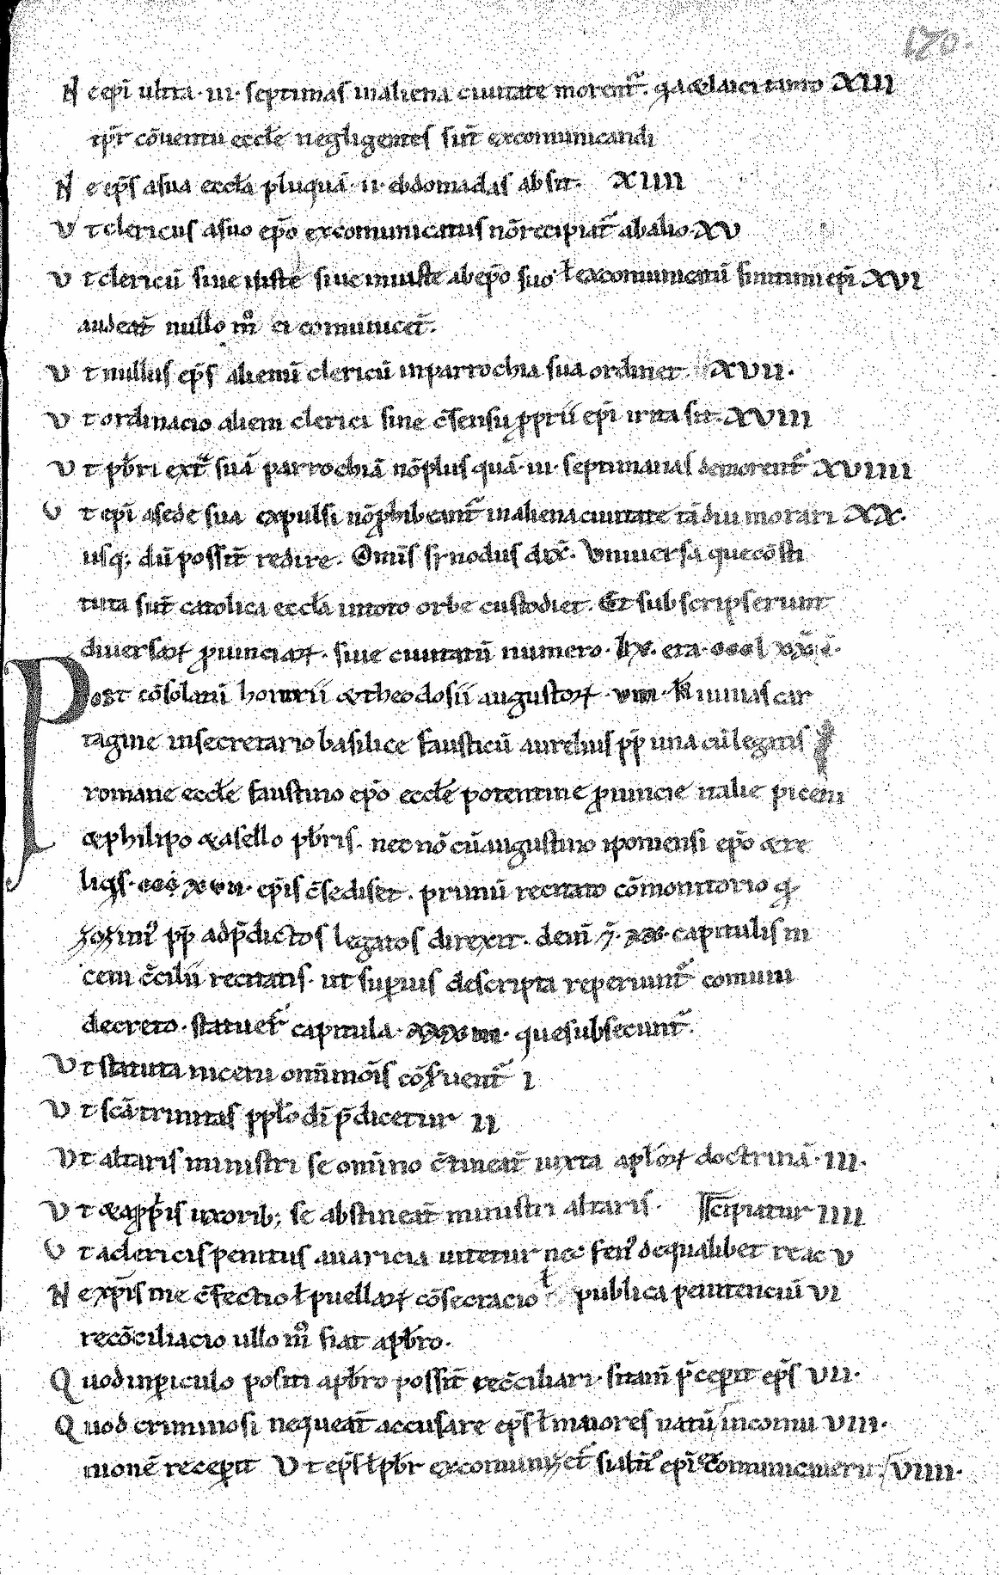 170.
Ne ep̄i ultra · iii · septimas in aliena ciuitate morent̄. q̄a & laici tanto XIII
tp̄r cōuentu eccl̄e negligentes sin̄t excomunicandi
Ne ep̄s a sua eccl̄a plusquā · ii · ebdomadas absit. XIIII
Vt clericus a suo ep̄o excomunicatus nō recipiat̄ ab alio · XV
Vt clericū siue iuste siue iniuste ab ep̄o suo ł excomunicatū ep̄i XVI
audeat̄ nullo m̊ ei comunicet̄.
Vt nullus ep̄s alienū clericū in parrochia sua ordinet. XVII.
Vt ordinacio alieni clerici sine c̄sensu ꝓprii ep̄i irrita sit. XVIII
Vt pb̄ri ext̄ suā parrochiā nō plus quā · iii · septimanas demorent̄ XVIIII
Vt ep̄i a sede sua expulsi nō ꝓhibeant̄ in aliena ciuitate tādiu morari XX.
usq; dū possin̄t redire. Om̄is sinodus dix̄. Vniuersa que cōsti
tuta sun̄t catolica eccl̄a in toto orbe custodiet. Et subscripserunt
diuersaꝝ ꝓuinciaꝝ. siue ciuitatū numero · LX · era ·
Post cōsolatū honorii & theodosii augustoꝝ · viii · kł iunias car
tagine in secretario basilice fausticū aurelius pp̄ una cū legatis
romane eccl̄e faustino ep̄o eccl̄e potentine ꝓuincie italie piceni
& philipo & asello pb̄ris. nec nō cū augustino iponiensi ep̄o & re
liq̄s · ccc xvii · ep̄is c̄sedis̄et. primū recitato cōmonitorio q̄
zozim᷒ pp̄ ad p̄dictos legatos direxit. dein̄ ⁊ · xx · capitulis ni
ceni c̄cilii recitatis. ut superius descripta reperiunt̄ comuni
decreto · statuer̄ capitula · XXXIII · que subsecunt̄.
Vt statuta niceni om̄imōis cōs̄ruent̄ I
Vt sc̄a trinitas ppl̄o dī p̄dicetur II
Vt altaris ministri se om̄ino c̄tineat̄ iuxta apl̄oꝝ doctrinā · III.
Vt & a ꝓp̄is uxorib; se abstineat̄ ministri altaris. cipiatur IIII
Vt a clericis penitus auaricia uitetur nec fen᷒ de qualibet re ac V
Ne xp̄is me c̄fectio ł puellaꝝ cōsecracio ł publica penitenciū VI
recōciliacio ullo m̊ fiat a pb̄ro.
Quod in ꝑiculo positi a pb̄ro possin̄t rec̄ciliari · si tam̄ p̄ceperit ep̄s VII.
Quod criminosi nequeat̄ accusare ep̄s ł maiores natū in comu VIII.
nionē receperit Vt ep̄s ł pb̄r ep̄i VIIII.